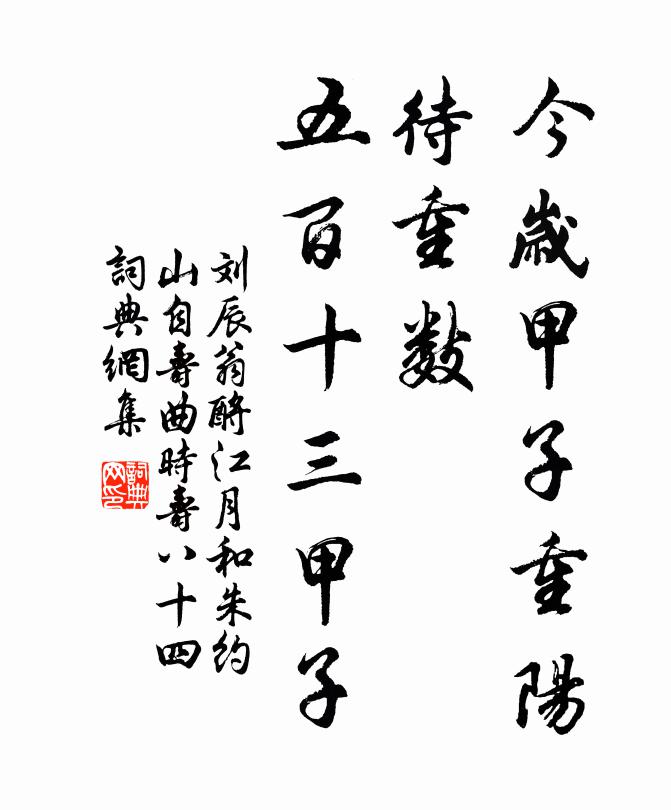 今歲甲子重陽
待重數
五百十三甲子
刘辰翁酹江月和朱約
山自壽曲時壽八十四
詞典網集
詞典
网印